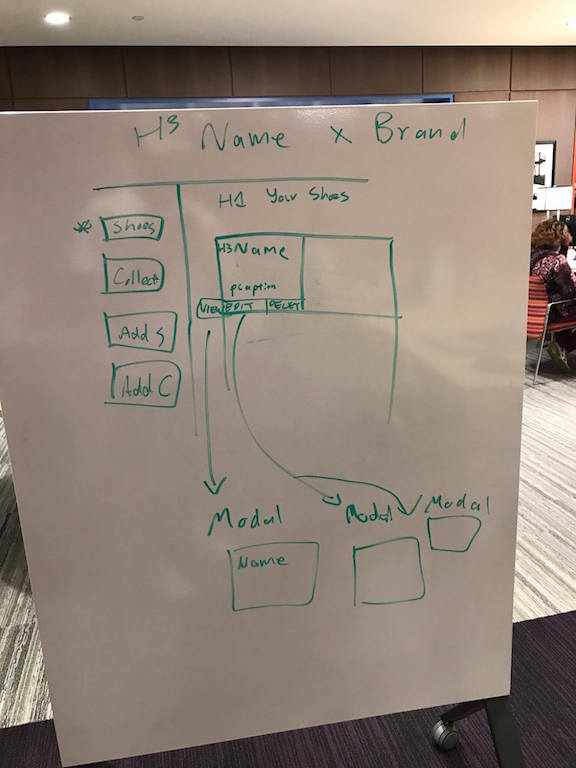 H3 Name x Brand
H1 Your Shoes
* Shoes
Collect
Add S
Add C
H3 Name
p caption
VIEW EDIT DELET
Modal
Modal
Modal
Name